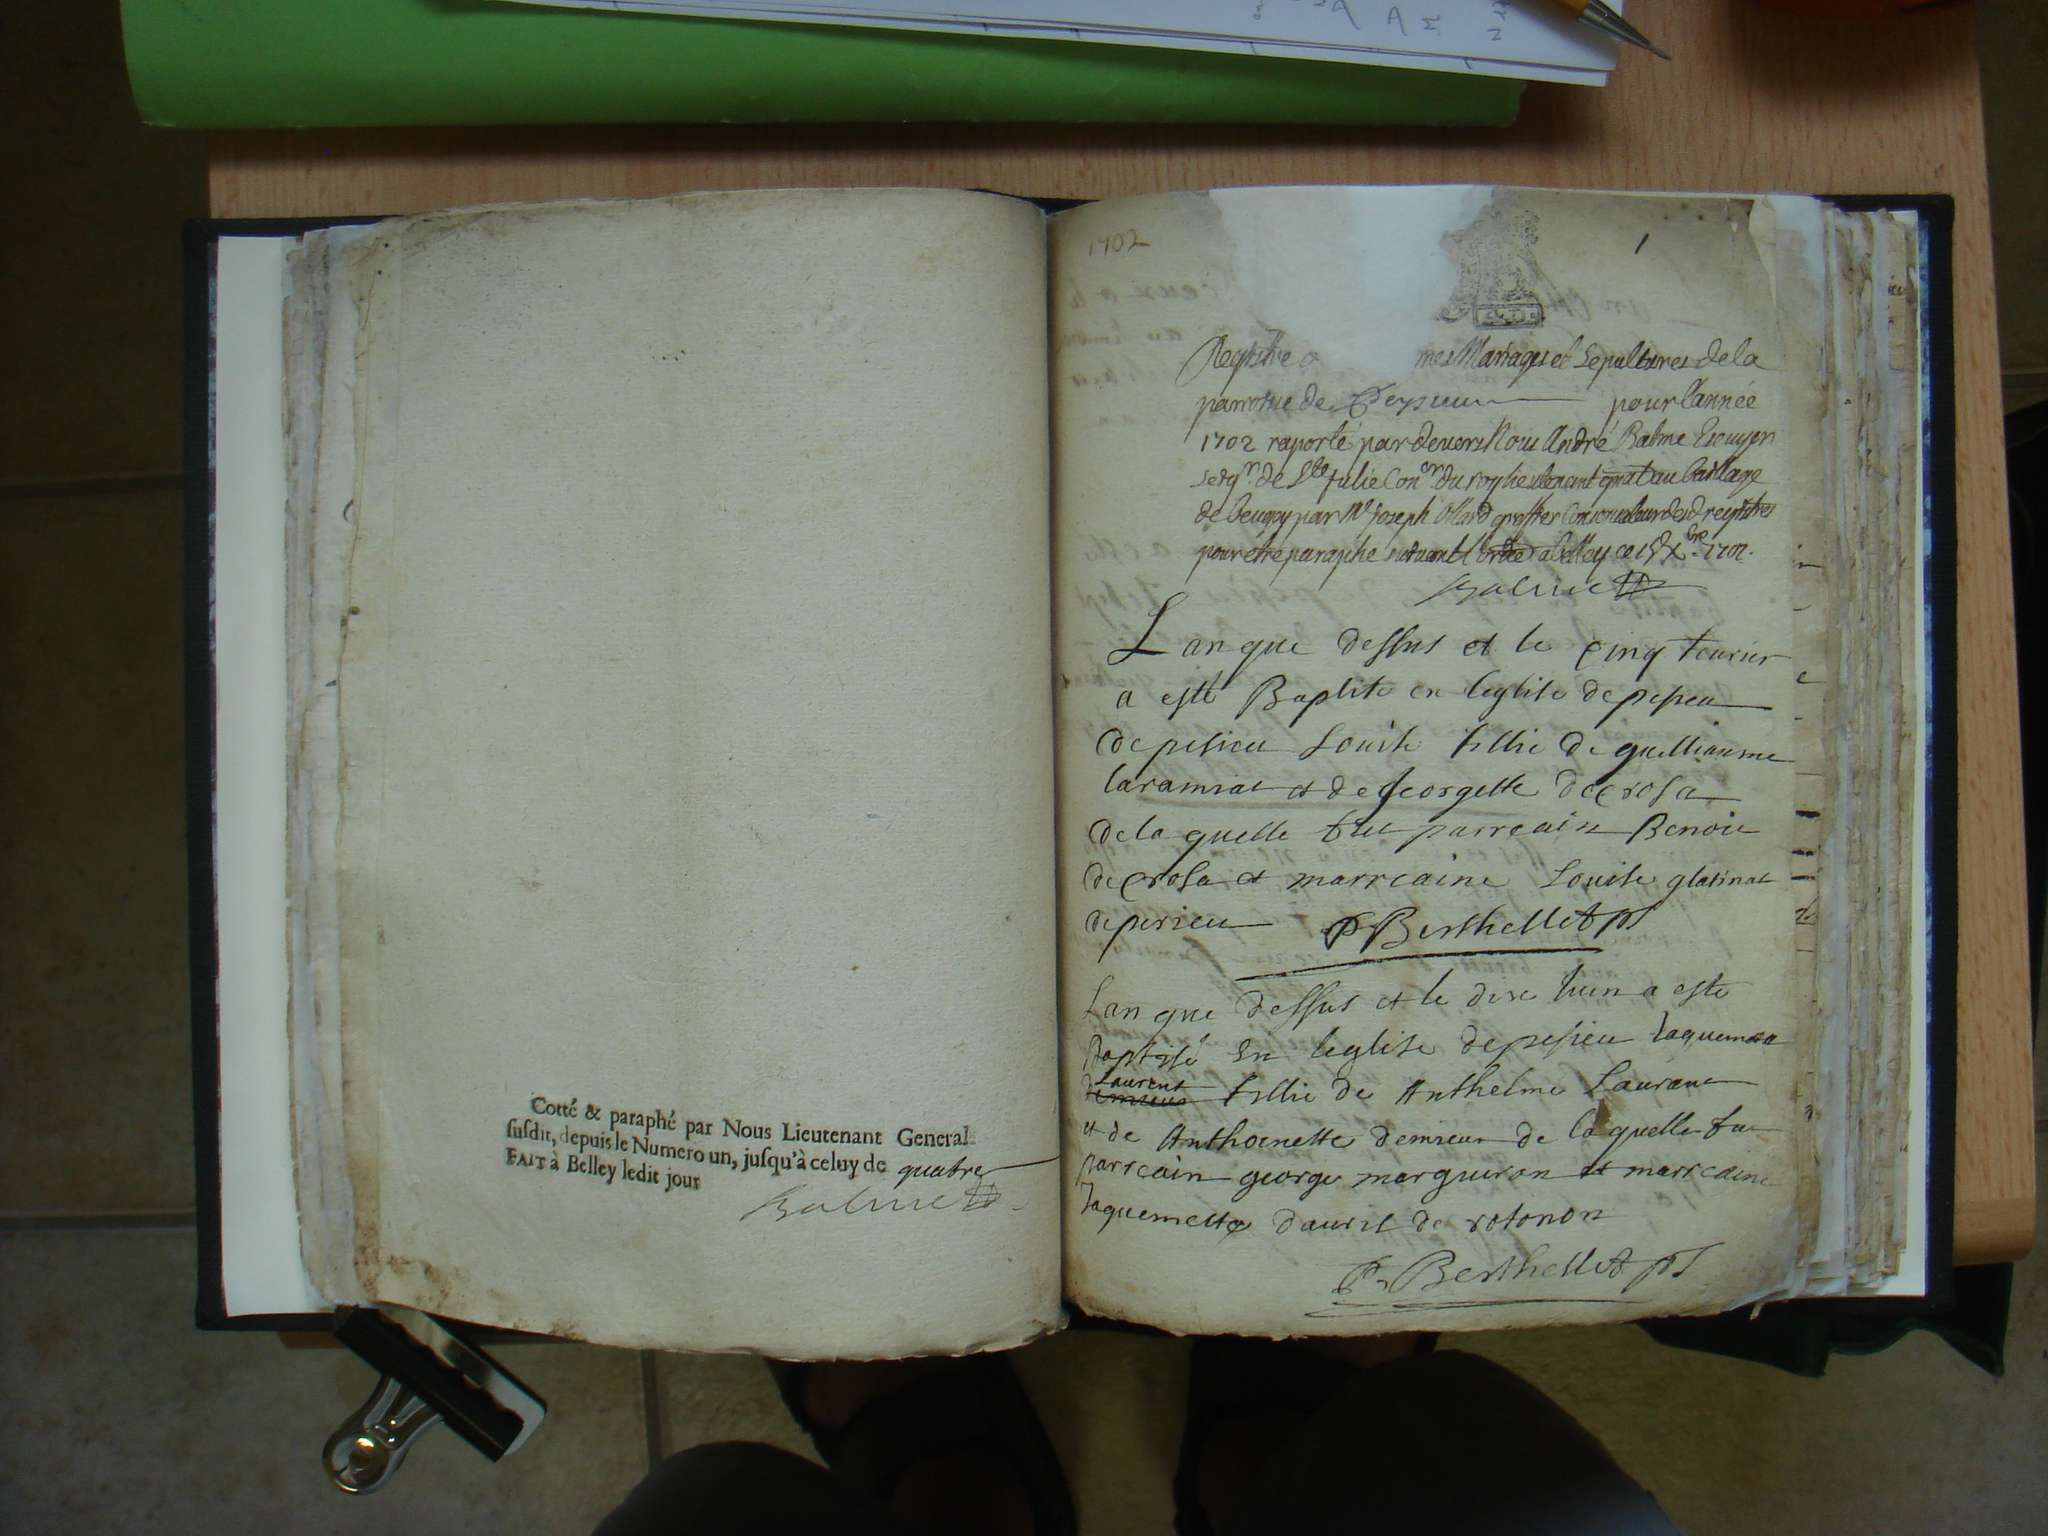 Cotté & paraphé par Nous Lieutenant General
ſuſdit, depuis le Numero un, juſqu'à celuy de quatre
FAIT à Belley ledit jour
Balme
1702
1
Registre mes Mariages et Sepultures de la
parroisse de Peysieu pour l'année
1702 raporté par devers Nous André Balme Escuyer
seigr. de Ste Julie Coner. du roy lieutenant gnal au bailliage
de beugey par Me Joseph greffier Conservateur des registres
pour etre paraphé suivant l'ordre a belley ce 15 Xbre 1702.
Balme
Lan que dessus et le cinq feurier
a esté Baptise en leglise de pesieu
de pesieu Louise fillie de guelliaume
laramiat et de georgette decrosa
de la quelle fut parrain Benoit
decrosa et marraine Louise glatinat
de pesieu P Berthellet ptr
Lan que dessus et le dixe huin a este
Baptisé En leglise de pesieu Jaquema
Laurent
demieux fillie de Anthelme Laurant
et de Anthoinette demieux de la quelle fut
parrain george marguiron et marraine
Jaquemette d'auril de rotonon
P. Berthellet ptr